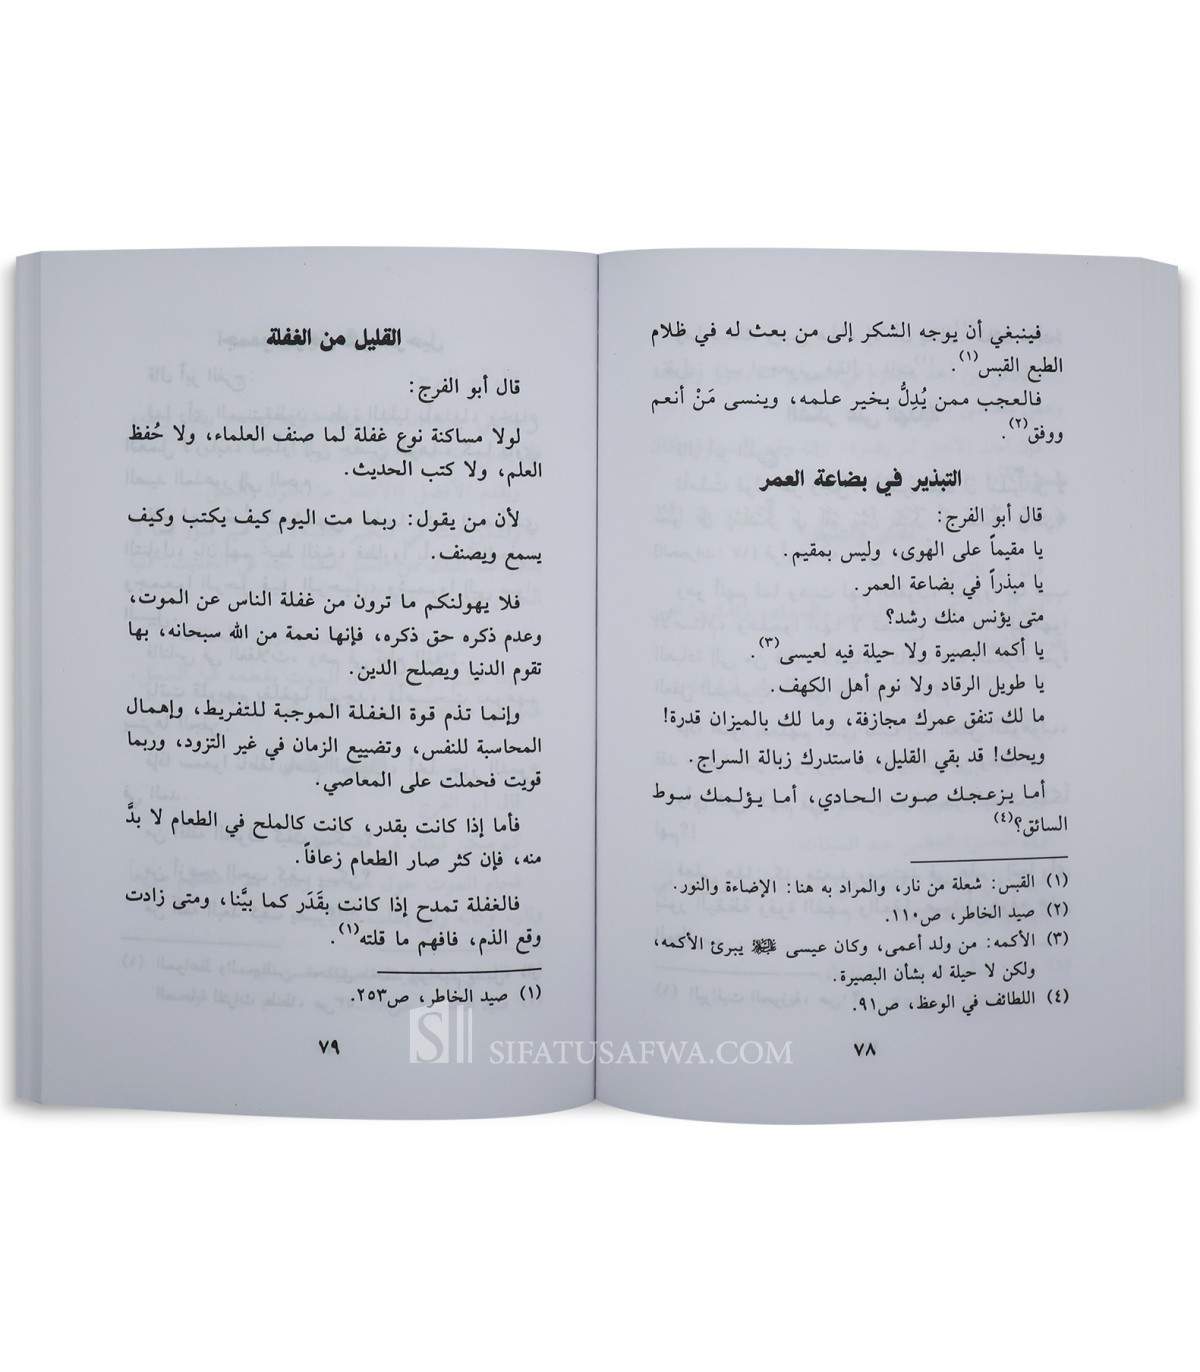 فينبغي أن يوجه الشكر إلى من بعث له في ظلام
الطبع القبس(١).
فالعجب ممن يُدِلُّ بخير علمه، وينسى مَنْ أنعم
ووفق(٢).
التبذير في بضاعة العمر
قال أبو الفرج:
يا مقيماً على الهوى، وليس بمقيم.
يا مبذراً في بضاعة العمر.
متى يؤنس منك رشد؟
يا أكمه البصيرة ولا حيلة فيه لعيسى(٣).
يا طويل الرقاد ولا نوم أهل الكهف.
ما لك تنفق عمرك مجازفة، وما لك بالميزان قدرة!
ويحك! قد بقي القليل، فاستدرك زبالة السراج.
أما يزعجك صوت الحادي، أما يؤلمك سوط
السائق؟(٤)
(١) القبس: شعلة من نار، والمراد به هنا: الإضاءة والنور.
(٢) صيد الخاطر، ص١١٠.
(٣) الأكمه: من ولد أعمى، وكان عيسى ﷺ يبرئ الأكمه،
ولكن لا حيلة له بشأن البصيرة.
(٤) اللطائف في الوعظ، ص٩١.
٧٨
القليل من الغفلة
قال أبو الفرج:
لولا مساكنة نوع غفلة لما صنف العلماء، ولا حُفظ
العلم، ولا كتب الحديث.
لأن من يقول: ربما مت اليوم كيف يكتب وكيف
يسمع ويصنف.
فلا يهولنكم ما ترون من غفلة الناس عن الموت،
وعدم ذكره حق ذكره، فإنها نعمة من الله سبحانه، بها
تقوم الدنيا ويصلح الدين.
وإنما تذم قوة الغفلة الموجبة للتفريط، وإهمال
المحاسبة للنفس، وتضييع الزمان في غير التزود، وربما
قويت فحملت على المعاصي.
فأما إذا كانت بقدر، كانت كالملح في الطعام لا بدَّ
منه، فإن كثر صار الطعام زعافاً.
فالغفلة تمدح إذا كانت بقَدَر كما بيَّنا، ومتى زادت
وقع الذم، فافهم ما قلته(١).
(١) صيد الخاطر، ص٢٥٣.
٧٩
SIFATUSAFWA.COM